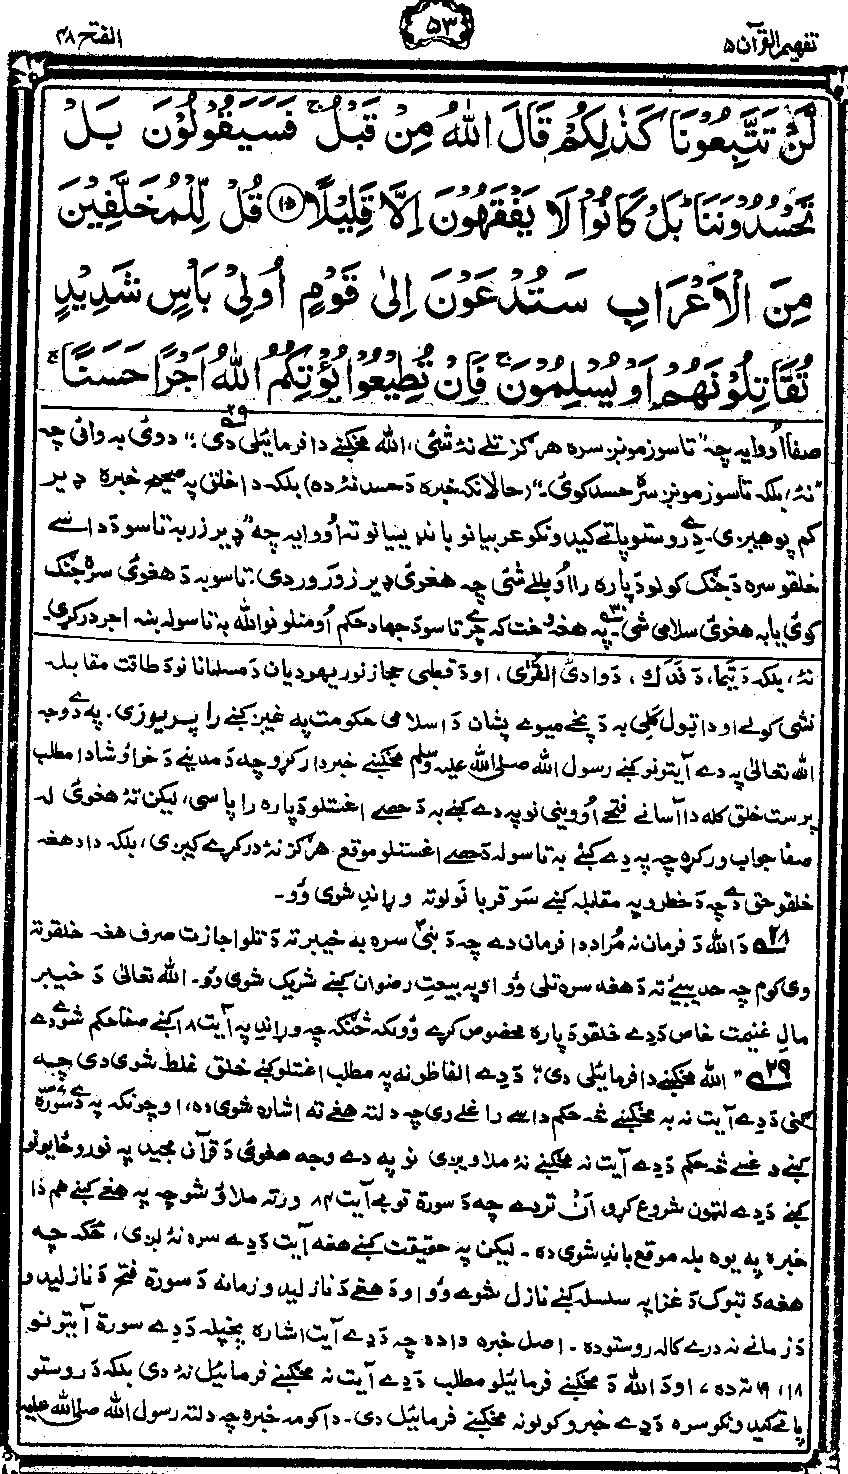 تفهیم القرآن ۵
۵۳
الفتح ۴۸
لَّنْ تَتَّبِعُوْنَا كَذٰلِكُمْ قَالَ اللّٰهُ مِنْ قَبْلُ ۚ فَسَيَقُوْلُوْنَ بَلْ
تَحْسُدُوْنَنَا ؕ بَلْ كَانُوْا لَا يَفْقَهُوْنَ اِلَّا قَلِيْلًا ﴿۱۵﴾ قُلْ لِّلْمُخَلَّفِيْنَ
مِنَ الْاَعْرَابِ سَتُدْعَوْنَ اِلٰى قَوْمٍ اُولِيْ بَاْسٍ شَدِيْدٍ
تُقَاتِلُوْنَهُمْ اَوْ يُسْلِمُوْنَ ۚ فَاِنْ تُطِيْعُوْا يُؤْتِكُمُ اللّٰهُ اَجْرًا حَسَنًا ۚ
صفا اُووایه چه "تاسو زمونږ سره هرګز تلے نهٔ شئی، الله مخکښے دا فرمائیلی دی ۲۹." دوئ به وائی چه
"نهٔ، بلکه تاسو زمونږ سره حسد کوئ." (حالانکه خبره دَ حسد نهٔ ده) بلکه دا خلق په صحیح خبره ډیر
کم پوهیږی. دے روستو پاتے کیدونکو عربیانو باندیسیانو ته اُووایه چه "ډیر زر به تاسو دَ داسے
خلقو سره دَ جنګ کولو دَ پاره رااُوبللے شئی چه هغوئ ډیر زورَور دی: تاسو به دَ هغوئ سره جنګ
کوئ یا به هغوئ سلامی شی ۳۰. په هغه وخت که چرے تاسو دَ جهاد حکم اُومنلو نو الله به تاسو له ښه اجر درکړی.
نهٔ، بلکه دَ تیما، دَ فدک، دَ وادئ القُرٰی، او دَ قبطی حجاز نور یهودیان دَ مسلمانانو دَ طاقت مقابله
نشی کولے او دا ټول کلی به دَ پخے میوے پشان دَ اسلامی حکومت په غیږ کښے را پریوزی. په دے وجه
الله تعالیٰ په دے آیتونو کښے رسول الله صلی الله علیه وسلم مخکښے خبردار کړو چه دَ مدینے دَ خوا و شا دا مطلب
پرست خلق کله دا آسانے فتحے اُووینی نو په دے کښے به دَ حصے اغستلو دَ پاره را پاسی، لیکن تهٔ هغوئ له
صفا جواب ورکړه چه په دے کښے به تاسو له دَ حصے اغستلو موقع هرګز نهٔ درکړے کیږی، بلکه دا دهغه
خلقو حق دے چه دَ خطرو په مقابله کښے سَر قربانَولو ته وړاندِ شوی وُو۔
۲۸ دَ الله دَ فرمان نه مُراد دا فرمان دے چه دَ نبیؐ سره به خیبر ته دَ تلو اجازت صرف هغه خلقو ته
وی کوم چه حدیبیئے ته دَ هغه سره تلی وُو او په بیعتِ رضوان کښے شریک شوی وُو۔ الله تعالیٰ دَ خیبر
مالِ غنیمت خاص دَ دے خلقو دَ پاره مخصوص کړے وُو لکه څنګه چه وړاندِ په آیت ۱۸ کښے صفا حکم شوے دے
۲۹ "الله مخکښے دا فرمائیلی دی"؛ دَ دے الفاظو نه په مطلب اغستلو کښے خلق غلط شوی دی چه
ګنی دَ دے آیت نه به مخکښے څه حکم داسے راغلے وی چه دلته هغے ته اشاره شوی ده، او چونکه په دے سُورة
کښے داسے څه حکم دَ دے آیت نه مخکښے نهٔ ملاویږی نو په دے وجه هغوئ دَ قرآن مجید په نورو ځایونو
کښے دَ دے لټون شروع کړو اَن تردے چه دَ سورة توبے آیت ۸۴ ورته ملاؤ شو چه په هغے کښے هم دا
خبره په یوه بله موقع باندِ شوی ده۔ لیکن په حقیقت کښے هغه آیت دَ دے سره نهٔ لږی، ځکه چه
هغه دَ تبوک دَ غزا په سلسله کښے نازل شوے وُو او دَ هغے دَ نازلیدو زمانه دَ سورة فتح دَ نازلیدو
دَ زمانے نه درے کاله روستو ده۔ اصل خبره داده چه دَ دے آیت اشاره پخپله دَ دے سورة آیتونو
۱۸، ۱۹ ته ده، او دَ الله دَ مخکښے فرمائیلو مطلب دَ دے آیت نه مخکښے فرمائیل نهٔ دی بلکه دَ روستو
پاتے کیدونکو سره دَ دے خبرو کولو نه مخکښے فرمائیل دی۔ دا کومه خبره چه دلته رسول الله صلی الله علیه